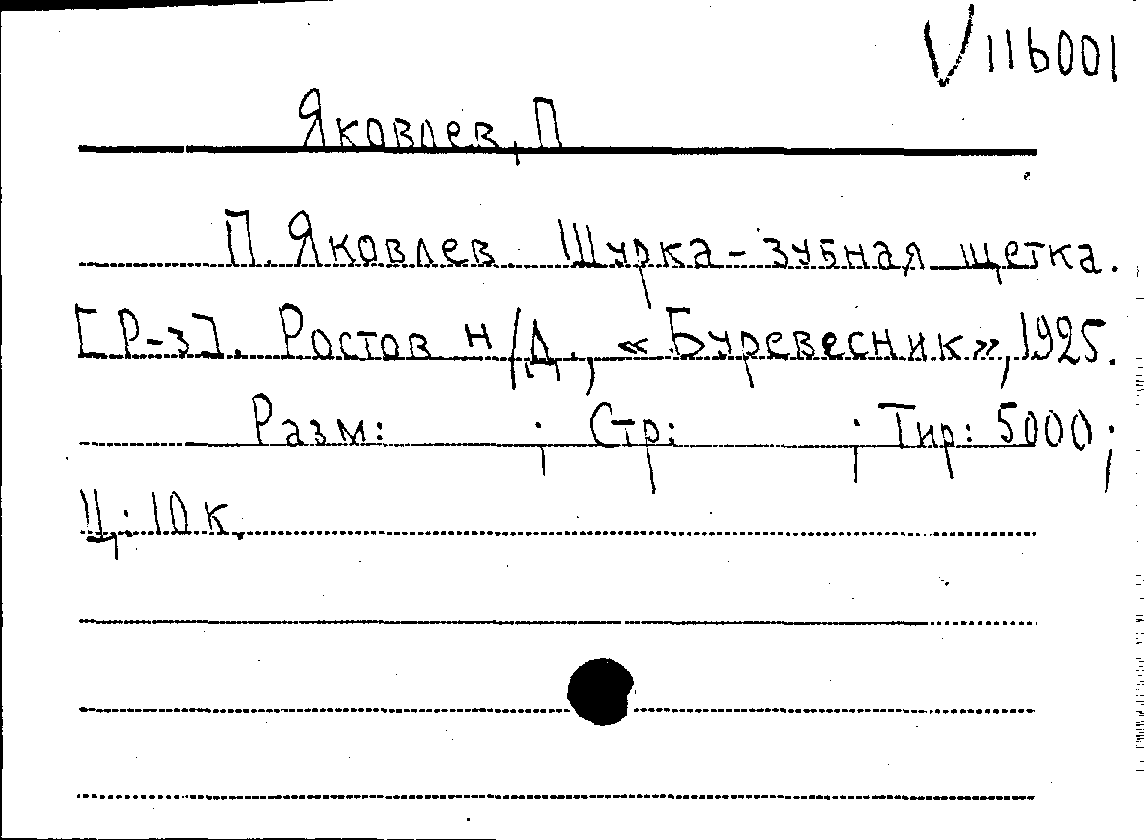 V 116001
Яковлев, П
П. Яковлев. Шурка-зубная щетка.
[Р-з]. Ростов н/Д., «Буревесник», 1925.
Разм: ; Стр: ; Тир: 5000;
Ц: 10 к.